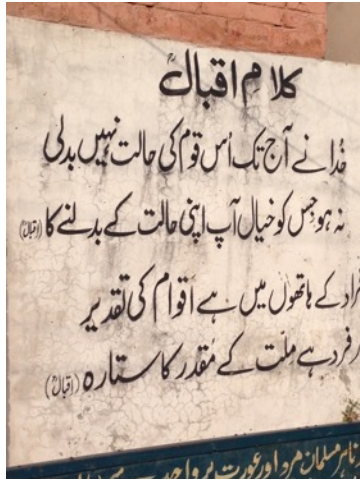 کلامِ اقبالؒ
خُدا نے آج تک اُس قوم کی حالت نہیں بدلی
نہ ہو جس کو خیال آپ اپنی حالت کے بدلنے کا (اقبالؒ)
کے ہاتھوں میں ہے اقوام کی تقدیر
فرد ہے ملّت کے مُقدر کا ستارہ (اقبالؒ)
مسلمان مرد اور عورت پر